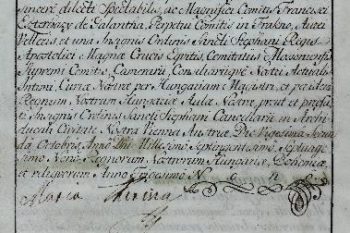 sincere dilecti Spectabilis, ac Magnifici Comitis Francisci
Eszterhazy de Galantha, Perpetui Comitis in Frakno, Aurei
Velleris et una Insignis Ordinis Sancti Stephani Regis
Apostolici Magnæ Crucis Equitis, Comitatus Mosoniensis
Supremi Comitis, Camerarii Consiliariique Nostri Actualis
Intimi, Curiæ Nostræ per Hungariam Magistri, et per idem
Regnum Nostrum Hungariæ Aulæ Nostræ, prout et præfati
Insignis Ordinis Sancti Stephani Cancellarii in Archi
Ducali Civitate Nostra Vienna Austriæ, Die Vigesima
da Octobris, Anno Dni Millesimo Septingentesimo Septuage
simo Nono Regnorum Nostrorum Hungariæ, Bohemiæ,
et reliquorum Anno Trigesimo N o n o
Maria Theresia